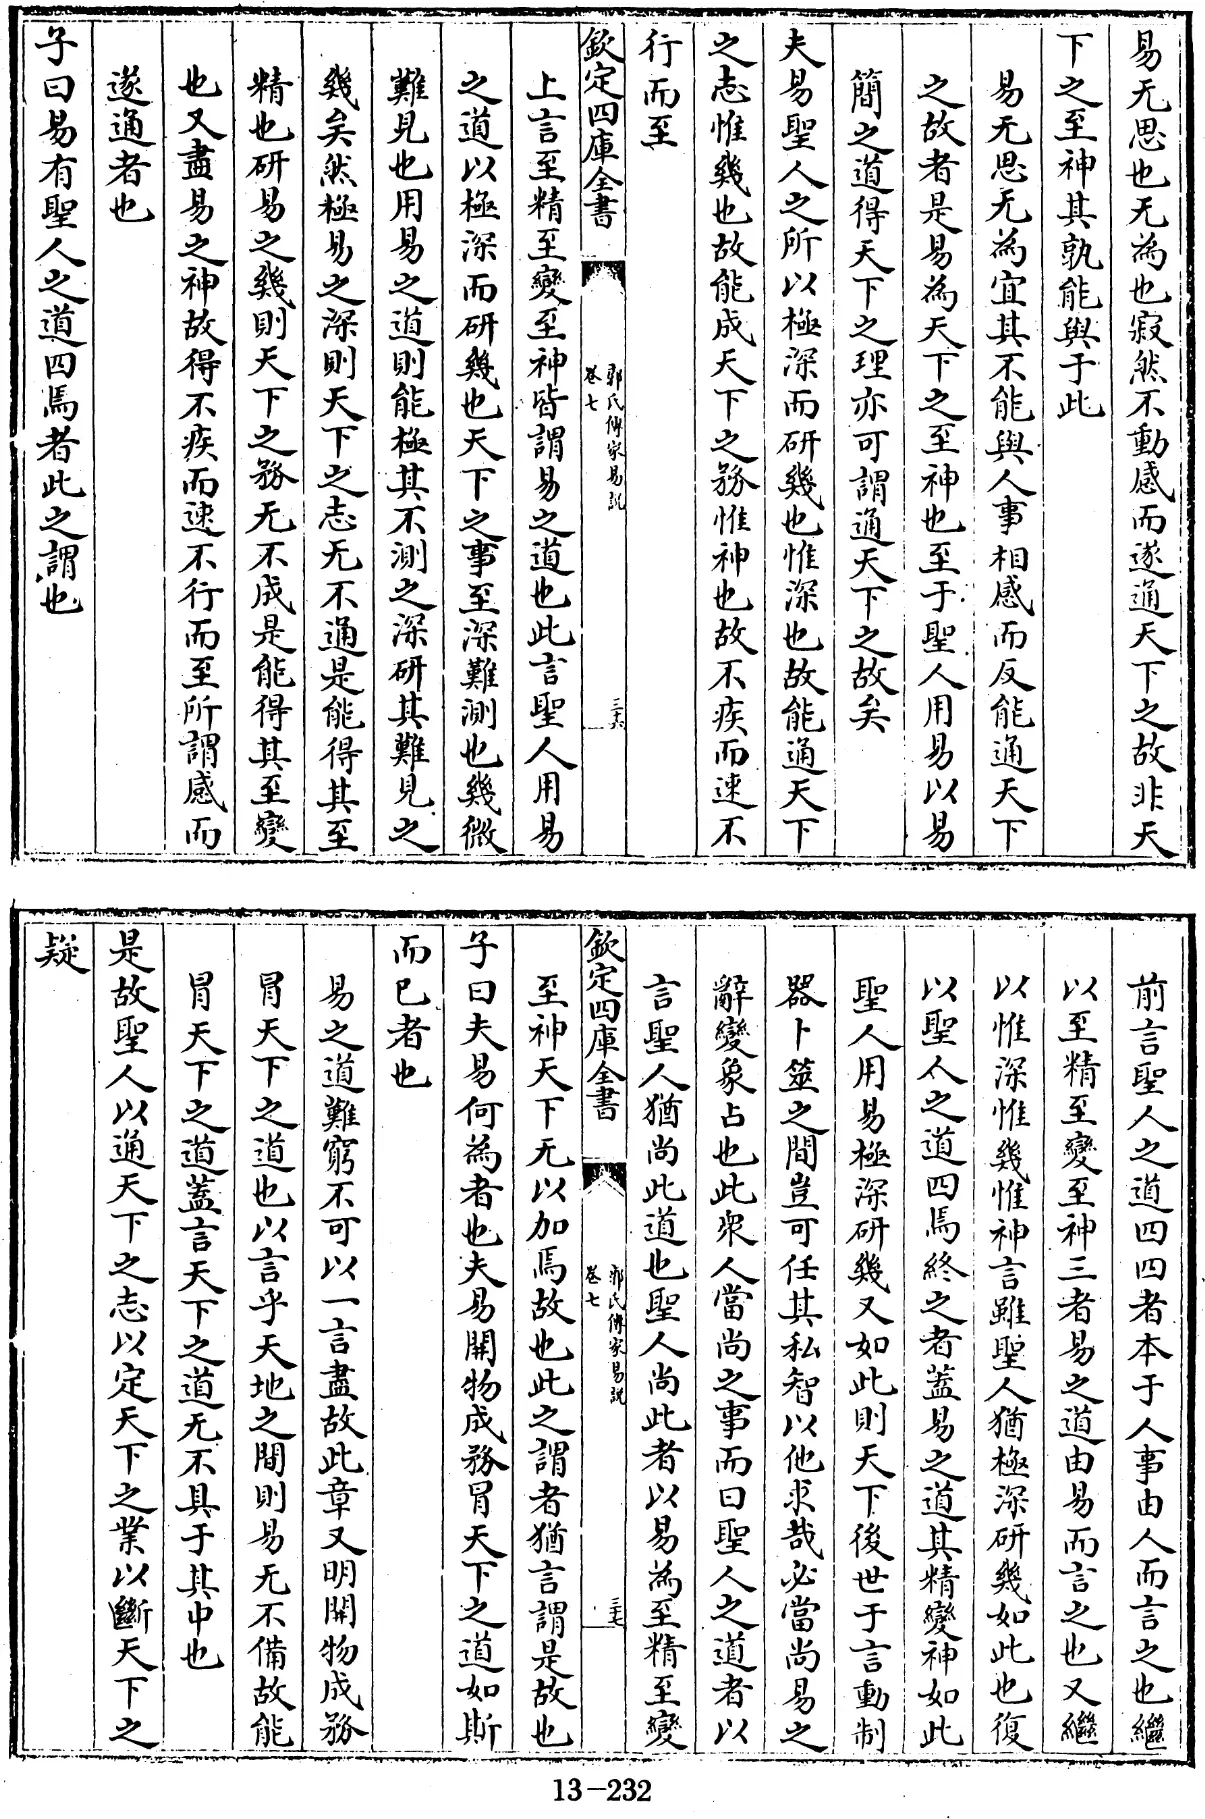 易无思也无為也寂然不動感而遂通天下之故非天
下之至神其孰能與于此
易无思无為宜其不能與人事相感而反能通天下
之故者是易為天下之至神也至于聖人用易以易
簡之道得天下之理亦可謂通天下之故矣
夫易聖人之所以極深而研幾也惟深也故能通天下
之志惟幾也故能成天下之務惟神也故不疾而速不
行而至
欽定四庫全書
郭氏傳家易說
卷七
三十六
上言至精至變至神皆謂易之道也此言聖人用易
之道以極深而研幾也天下之事至深難測也幾微
難見也用易之道則能極其不測之深研其難見之
幾矣然極易之深則天下之志无不通是能得其至
精也研易之幾則天下之務无不成是能得其至變
也又盡易之神故得不疾而速不行而至所謂感而
遂通者也
子曰易有聖人之道四焉者此之謂也
前言聖人之道四四者本于人事由人而言之也繼
以至精至變至神三者易之道由易而言之也又繼
以惟深惟幾惟神言雖聖人猶極深研幾如此也復
以聖人之道四焉終之者蓋易之道其精變神如此
聖人用易極深研幾又如此則天下後世于言動制
器卜筮之間豈可任其私智以他求哉必當尚易之
辭變象占也此衆人當尚之事而曰聖人之道者以
言聖人猶尚此道也聖人尚此者以易為至精至變
欽定四庫全書
郭氏傳家易說
卷七
三十七
至神天下无以加焉故也此之謂者猶言謂是故也
子曰夫易何為者也夫易開物成務冒天下之道如斯
而已者也
易之道難窮不可以一言盡故此章又明開物成務
冒天下之道也以言乎天地之間則易无不備故能
冒天下之道蓋言天下之道无不具于其中也
是故聖人以通天下之志以定天下之業以斷天下之
疑
13-232